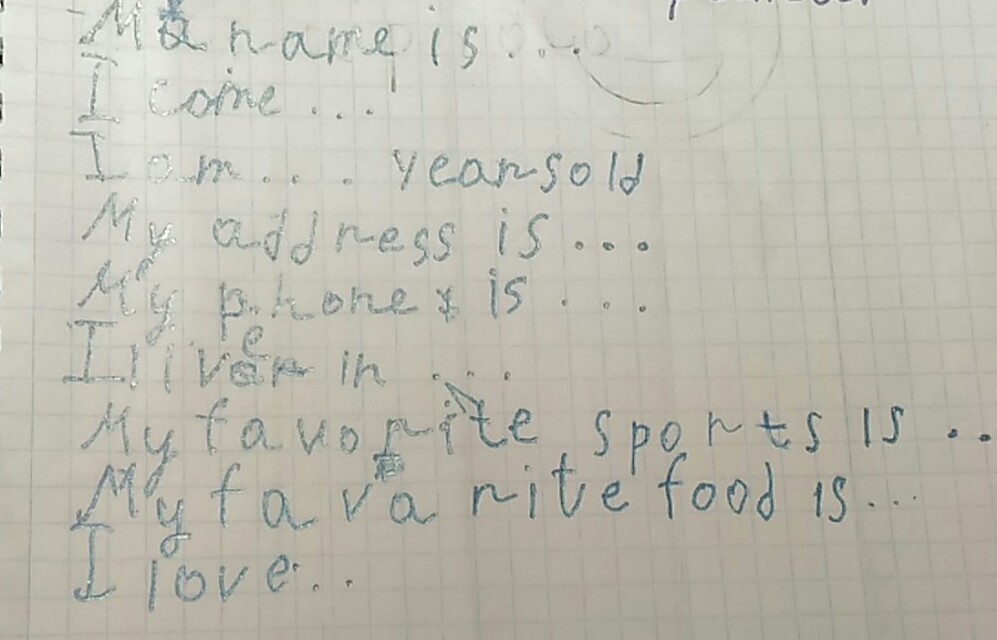 My name is...
I come...
I am... years old
My address is...
My phone is....
I live in ...
My favorite sports is ..
My favarite food is...
I love...